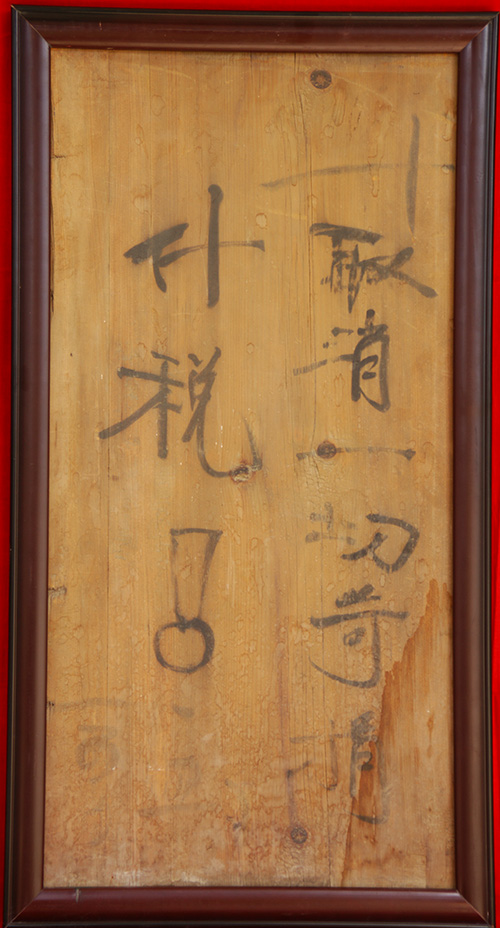 十取消一切苛捐
什税！